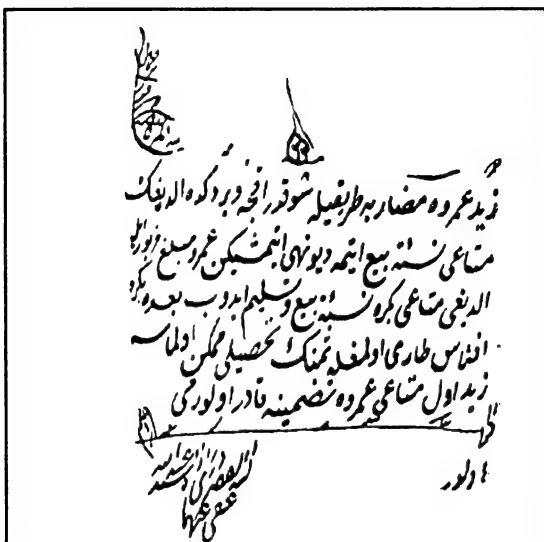 زيد عمروه مضاربه طريقيله شو قدر اقچه ويردكده الديغك
متاعى نسئة بيع ايتمه ديو نهى ايتمشيكن عمرو مبلغ مزبور ايله
الديغى متاعى بكره نسئة بيع و تسليم ايدوب بعده بكره
افلاس طارى اولمغله ثمنك تحصيلى ممكن اولماسه
زيد اول متاعى عمروه تضمينه قادر اولورمى
اولور
الفقير
عفى عنهما